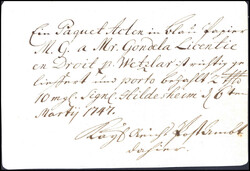 Ein Paquet Acten in blau papier
M. G. a Mr. Gondela Licentié
en Droit p. Wetzlar ist richtig ge-
lieffert und porto bezahlt
10 mgl. Sign. Hildesheim d. 6ten
Martij 1747.
Kayß. Reichs Post Ambt
daselbst